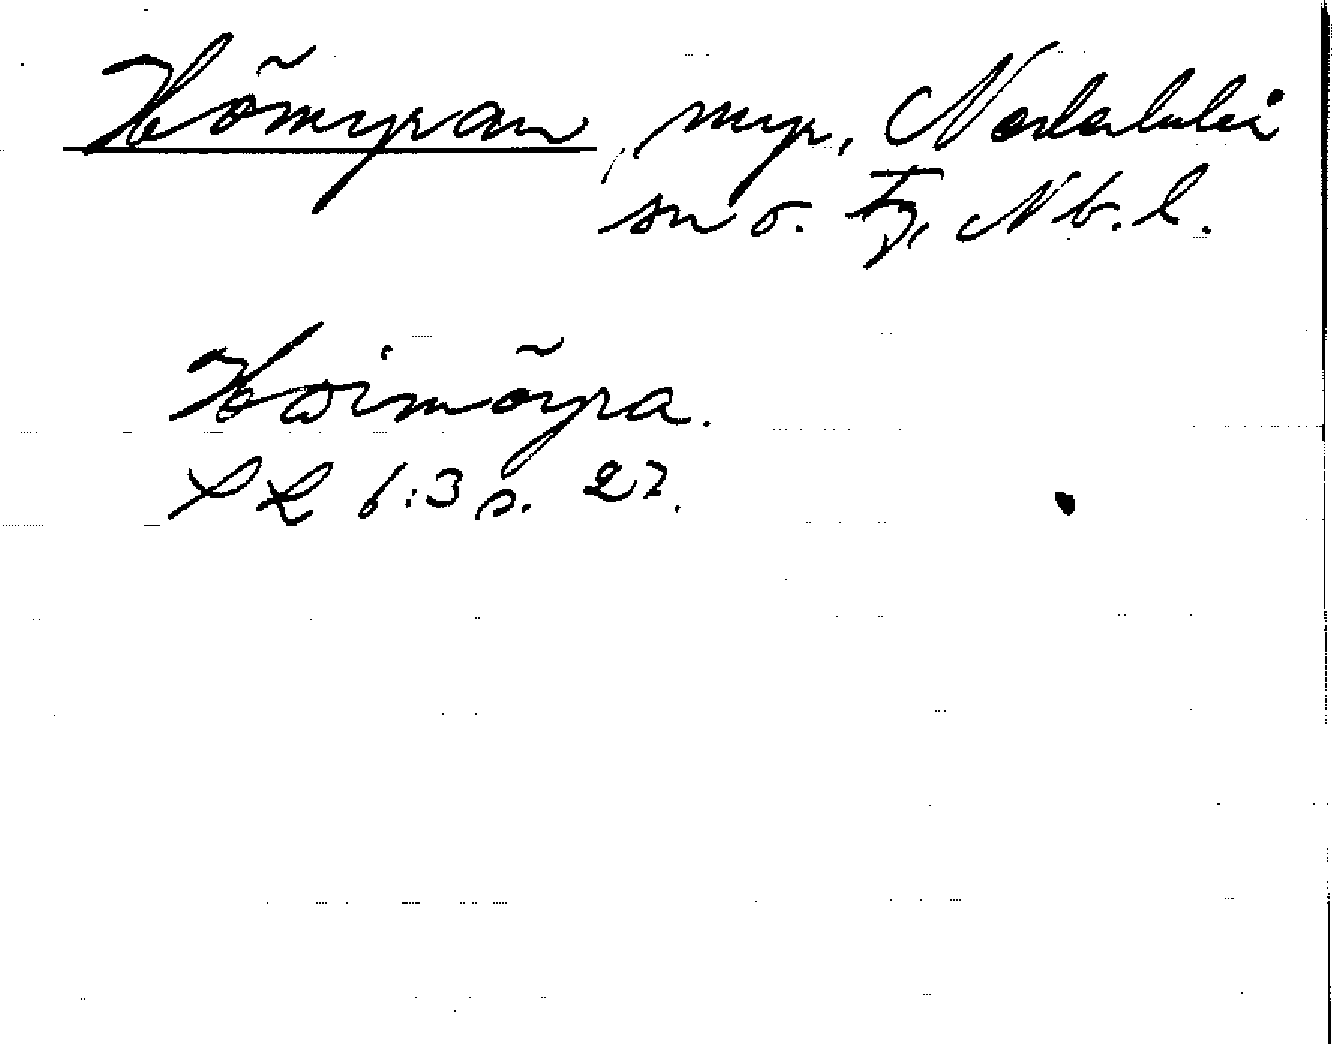 Hömyran, myr, Nederluleå
sn o. tg, Nb. l.
Hoimöyra.
SL 6:3 s. 27.